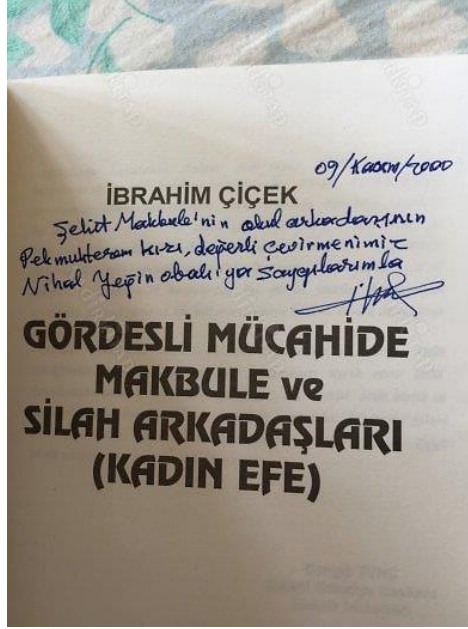 09/Kasım/2000
İBRAHİM ÇİÇEK
Şehit Makbule'nin okul arkadaşının
Pek muhterem kızı, değerli çevirmenimiz
Nihal Yeğinobalı'ya Saygılarımla
GÖRDESLİ MÜCAHİDE
MAKBULE ve
SİLAH ARKADAŞLARI
(KADIN EFE)